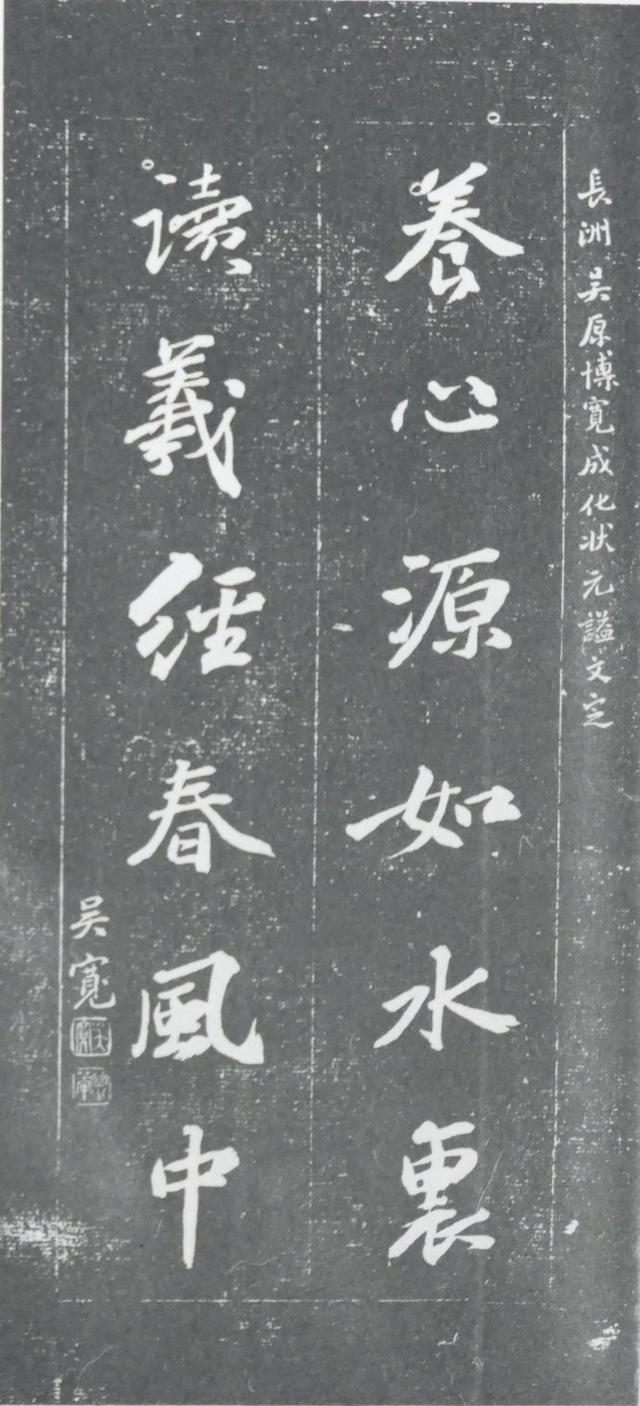 長洲吴原博寬成化状元謚文定
養心源如水裏
讀羲經春風中
吴寬